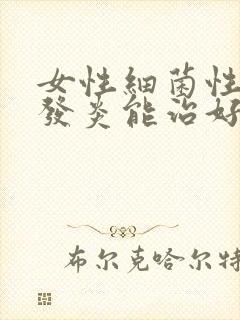 女性細菌性
發炎能治好
布尔克哈尔特